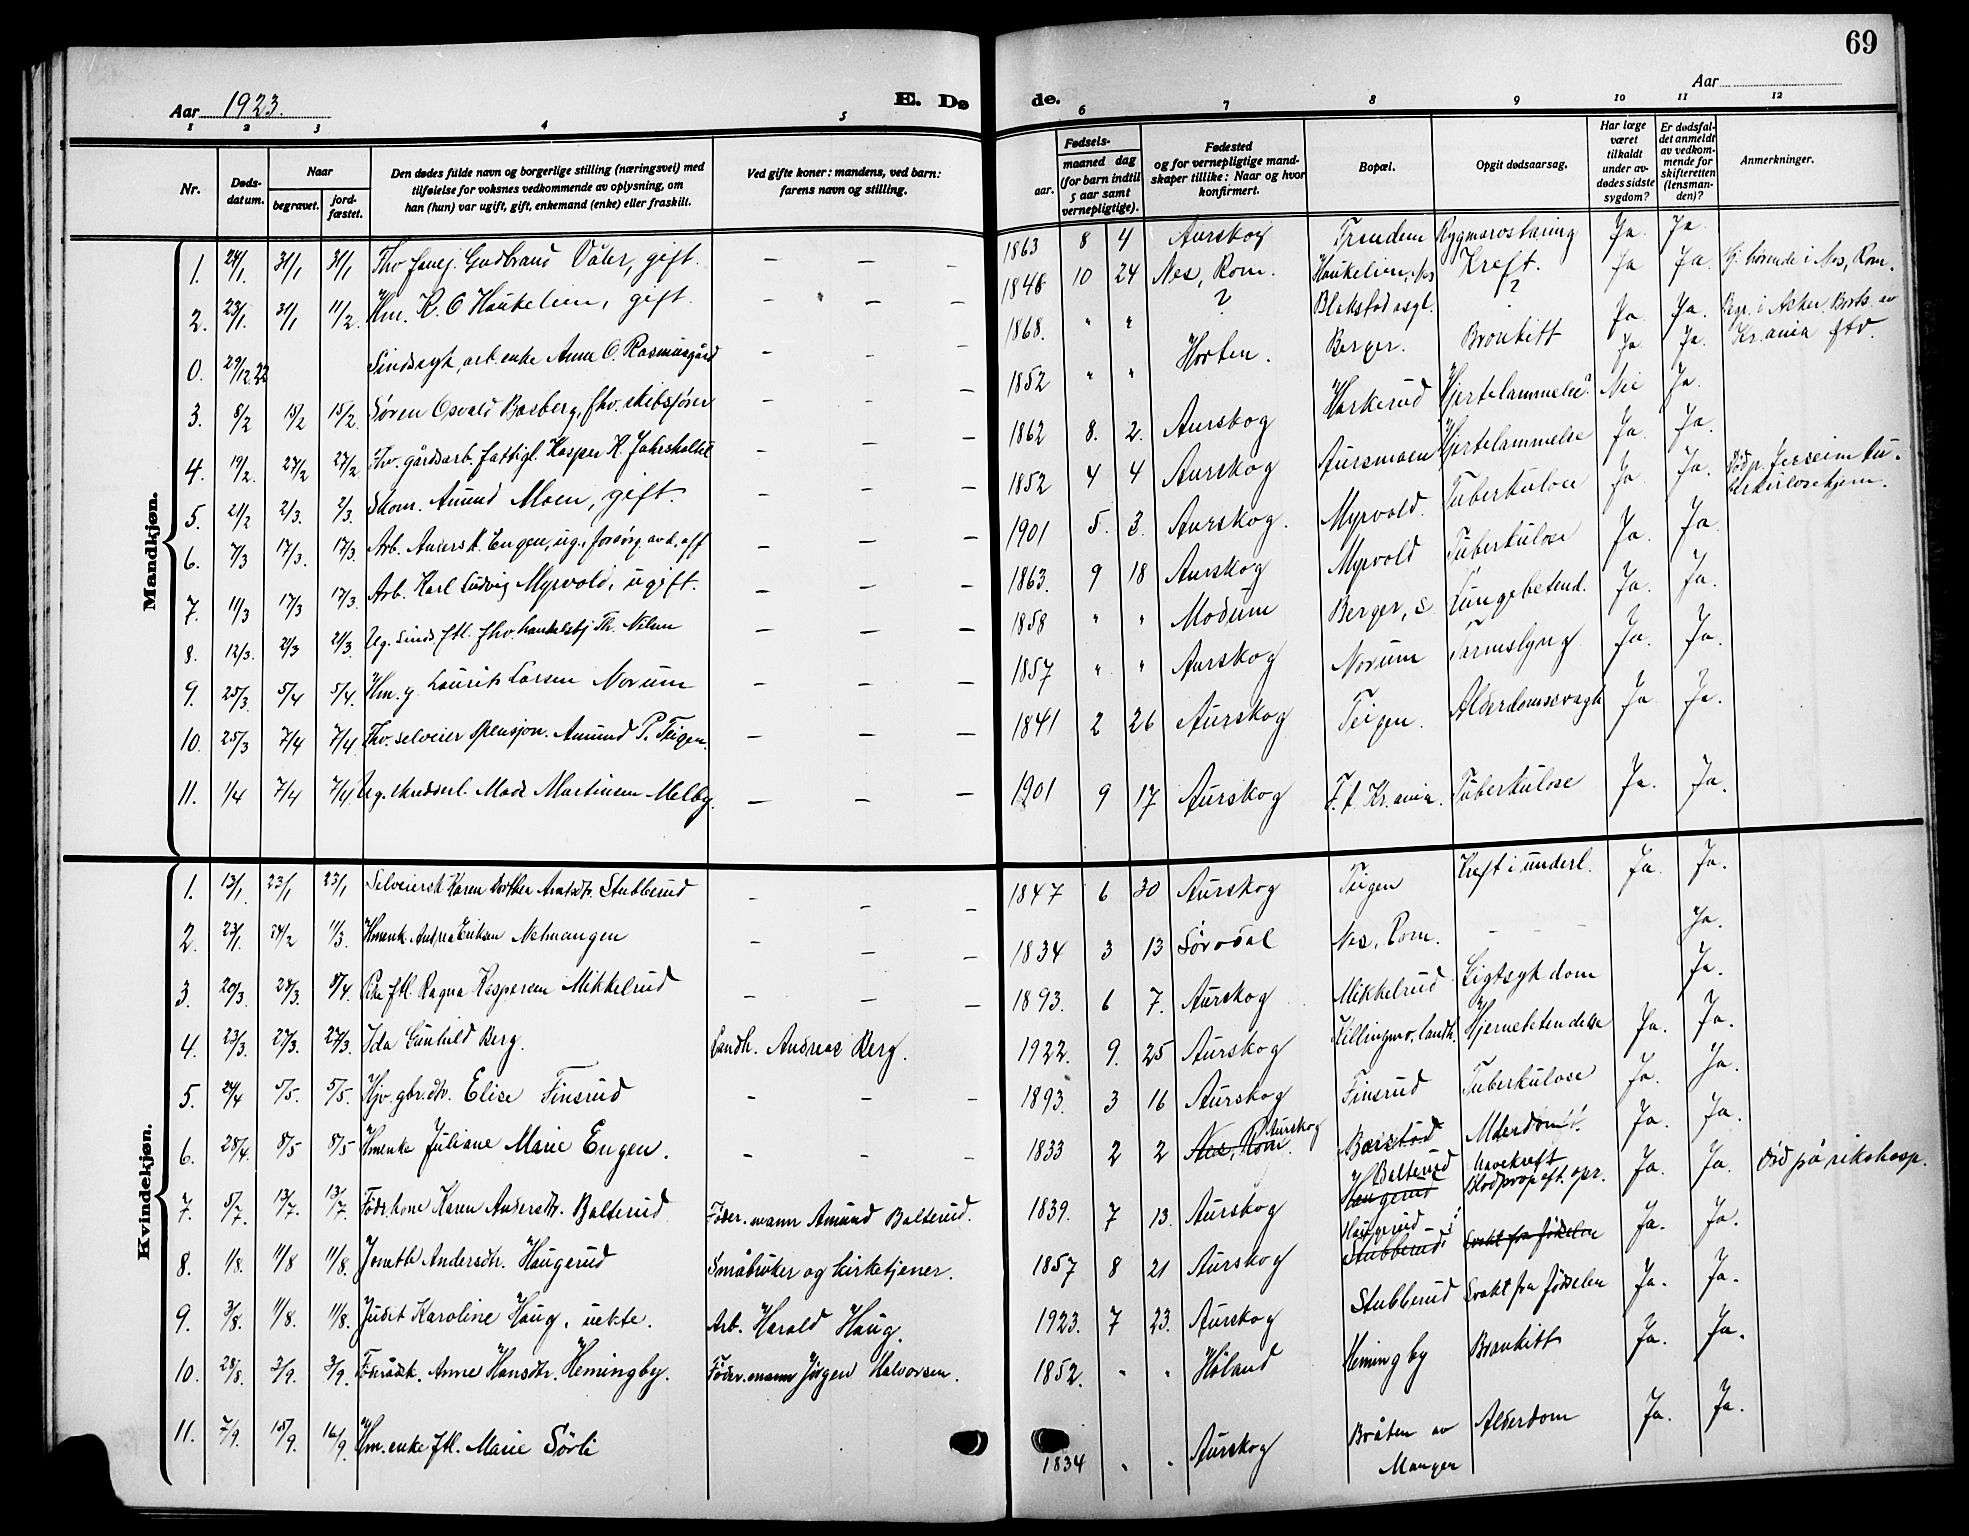 69
Aar 1923.
E. Dø
de.
Aar
1 2 3 4 5
6 7 8 9 10 11 12
Nr.
Døds-datum.
Naar
begravet.
jord-fæstet.
Den dødes fulde navn og borgerlige stilling (næringsvei) med
tilføielse for voksnes vedkommende av oplysning, om
han (hun) var ugift, gift, enkemand (enke) eller fraskilt.
Ved gifte koner: mandens, ved barn:
farens navn og stilling.
Fødsels-
aar.
maaned dag
(for barn indtil
5 aar samt
vernepligtige).
Fødested
og for vernepligtige mand-
skaper tillike: Naar og hvor
konfirmert.
Bopæl.
Opgit dødsaarsag.
Har læge
været
tilkaldt
under av-
dødes sidste
sygdom?
Er dødsfal-
det anmeldt
av vedkom-
mende for
skifteretten
(lensman-
den)?
Anmerkninger.
Mandkjøn.
1. 24/1. 31/1 31/1 Gudbrand Vater, gift. — — — 1863 8 4 Aurskog Rygmarvstæring Ja. Ja.
2. 23/1. 31/1 11/2. Hm. K. O Haukelien, gift. — — — 1846 10 24 Nes, Rom. Haukelien, Nes Kreft. Ja Ja. hørende i Nes, Rom.
0. 29/12.22 Sindssyk, arb. enke Anne O. Rasmusgård — — — 1868. " " ? Blakstad asyl. ? Ja. Ja. Begr. i Asker.
3. 8/2 15/2 15/2. Søren Osvald Basberg, fhv. skibsfører — — — 1852 " " Horten. Berger. Bronkitt Ja. Ja. Kr.ania
4. 19/2. 27/2 27/2. Fhv. gårdsarb. fattigl. Kasper K. — — — 1862 8. 2. Aurskog Harkerud Hjertelammelse? Nei Ja.
5. 21/2 2/3. 2/3. Skom. Amund Moen, gift. — — — 1852 4 4 Aurskog Aursmoen Hjertelammelse Ja. Ja.
6. 7/3 17/3. 17/3. Arb. Anders K. Engen, ug., forsørg. av — — — 1901 5. 3. Aurskog. Myrvold. Tuberkulose Ja. Ja. Død p. Jesseim tu-
berkulosehjem.
7. 11/3 17/3 17/3. Arb. Karl Ludvig Myrvold, ugift. — — — 1863. 9 18 Aurskog Myrvold Tuberkulose Ja. Ja.
8. 12/3. 21/3 21/3. Ug. sinds ftl. fhv. handelsbj. Th. Nilsen — — — 1858 " " Modum Berger, s. Lungebetend. Ja. Ja.
9. 25/3. 5/4 5/4. Hm. g. Laurits Larsen Norum — — — 1857 " " Aurskog Norum Tarmslyng Ja. Ja.
10. 25/3 7/4 7/4 Fhv. selveier pensjon. Amund P. Teigen. — — — 1841 2 26 Aurskog Teigen. Alderdomssvagh Ja Ja.
11. 1/4 7/4 7/4 Ug. skrædderl. Mads Martinsen Melby. — — — 1901 9 17 Aurskog F. t. Kr.ania. Tuberkulose Ja. Ja.
Kvindekjøn.
1. 13/1. 23/1 23/1 Selveiersk. Karen Dorthea Stubberud — — — 1847 6 30 Aurskog Teigen Kreft i underl. Ja. Ja.
2. 23/1. 24/2 11/3. Hmenk. Andrea Eriksen — — — 1834 3 13 Sørodal Nes, Rom. — — Ja.
3. 20/3. 28/3. 8/4. Pike ftl. Ragna Kaspersen Mikkelrud — — — 1893. 6 7. Aurskog Mikkelrud Gigtsykdom Ja.
4. 23/3. 27/3. 27/3. Ida Gunhild Berg. Landh. Andreas Berg. 1922. 9. 25 Aurskog Killingmo, landh. Hjernebetendelse Ja. Ja.
5. 24/4 5/5. 5/5. Hjv. gbr.dtr. Elise Finsrud — — — 1893. 3 16 Aurskog Finsrud Tuberkulose Ja. Ja.
6. 28/4. 8/5 8/5 Hmenke Juliane Marie Engen. — — — 1833 2 2 Nes, Rom. Aurskog Bærstad Alderdom Ja. Ja.
7. 5/7. 13/7. 13/7. Føder.kone Karen Andersdtr. Balterud Føder.mann Amund Balterud. 1839. 7 13. Aurskog Haugerud Balterud Mavekreft Blodprop eft. opr. Ja. Ja. Død på rikshosp.
8. 1/8. 11/8 11/8. Jonette Andersdtr. Haugerud Småbruker og kirketjener. 1857 8 21 Aurskog Stubberud Haugerud Svakt fra fødselen Ja. Ja.
9. 3/8. 11/8. 11/8. Judit Karoline Haug, uekte. Arb. Harald Haug. 1923. 7 23. Aurskog Stubberud Svakt fra fødselen Ja. Ja.
10. 28/8. 3/9. 3/9. Føderådsk. Anne Hansdtr. Hemingby. Føder.mann Jørgen Halvorsen. 1852. " " Høland Hemingby Bronkitt Ja. Ja.
11. 7/9. 15/9. 16/9. Hm.enke ftl. Marie Sörli 1834 " " Aurskog Bråten av Manger Alderdom Ja. Ja.